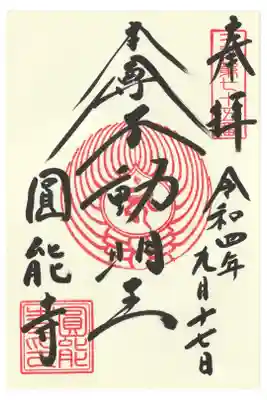 奉拝
令和四年
九月十七日
本尊
不動明王
圓能寺